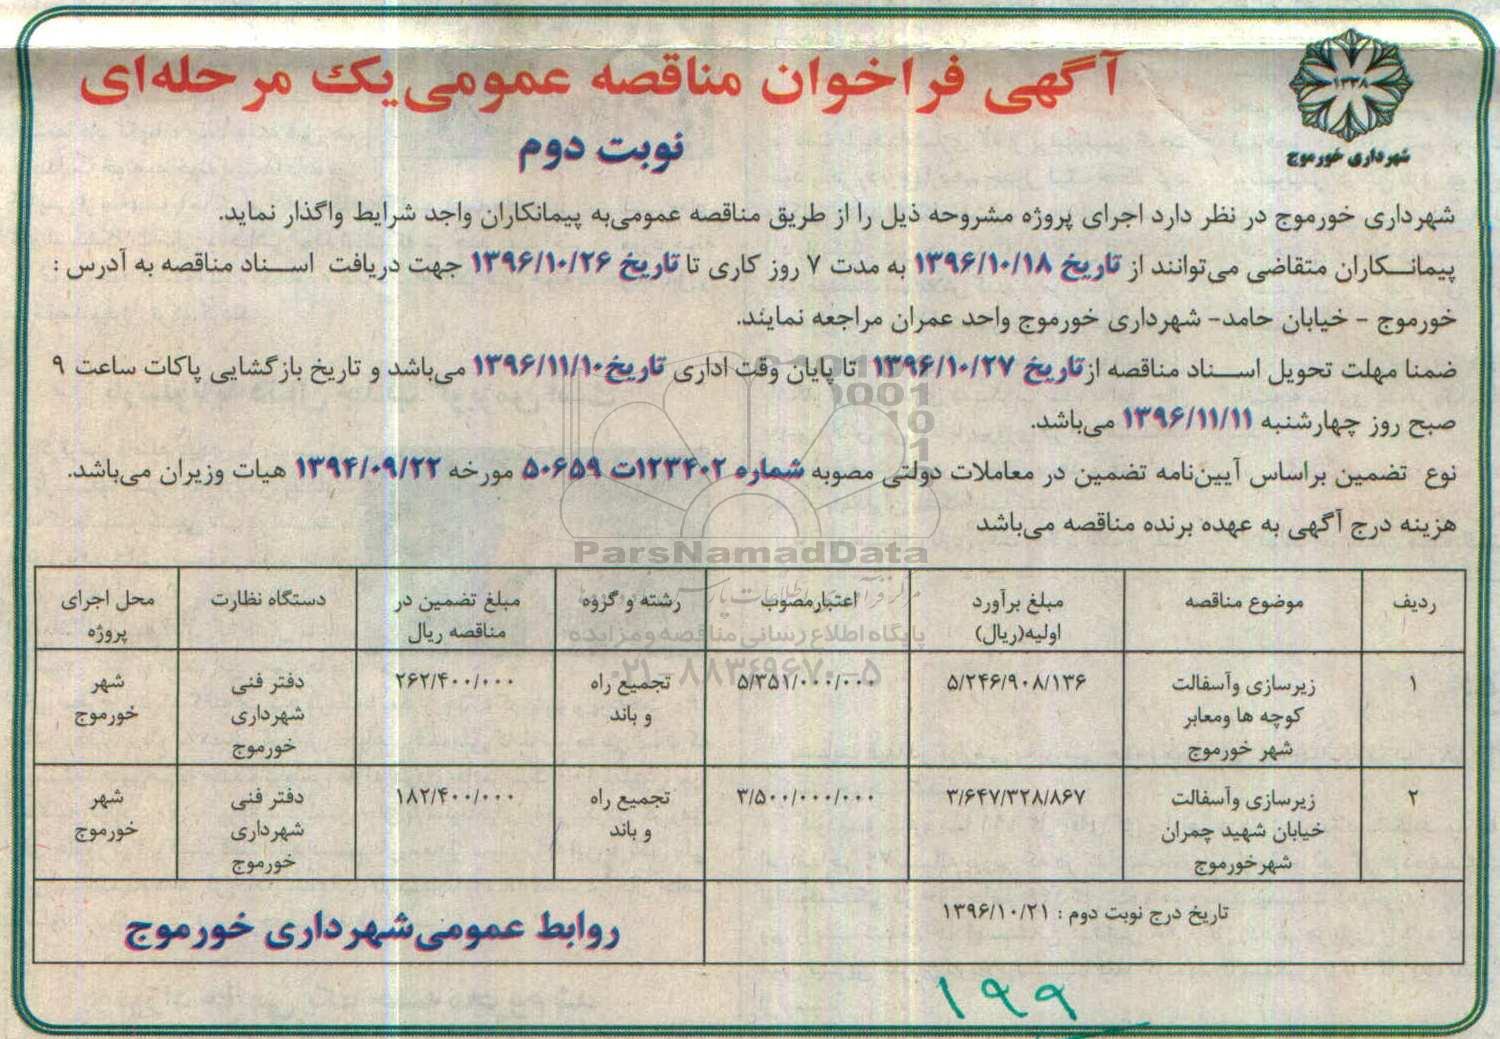 ۱۳۳۸
شهرداری خورموج
آگهی فراخوان مناقصه عمومی یک مرحله‌ای
نوبت دوم
شهرداری خورموج در نظر دارد اجرای پروژه مشروحه ذیل را از طریق مناقصه عمومی‌به پیمانکاران واجد شرایط واگذار نماید.
پیمانکاران متقاضی می‌توانند از تاریخ ۱۳۹۶/۱۰/۱۸ به مدت ۷ روز کاری تا تاریخ ۱۳۹۶/۱۰/۲۶ جهت دریافت اسناد مناقصه به آدرس :
خورموج - خیابان حامد- شهرداری خورموج واحد عمران مراجعه نمایند.
ضمنا مهلت تحویل اسناد مناقصه از تاریخ ۱۳۹۶/۱۰/۲۷ تا پایان وقت اداری تاریخ ۱۳۹۶/۱۱/۱۰ می‌باشد و تاریخ بازگشایی پاکات ساعت ۹
صبح روز چهارشنبه ۱۳۹۶/۱۱/۱۱ می‌باشد.
نوع تضمین براساس آیین‌نامه تضمین در معاملات دولتی مصوبه شماره ۱۲۳۴۰۲ت ۵۰۶۵۹ مورخه ۱۳۹۴/۰۹/۲۲ هیات وزیران می‌باشد.
هزینه درج آگهی به عهده برنده مناقصه می‌باشد
ParsNamadData
پایگاه اطلاع رسانی مناقصه و مزایده
۰۲۱-۸۸۳۴۹۶۷۰-۵
ردیف موضوع مناقصه مبلغ برآورد اولیه(ریال) اعتبارمصوب رشته و گروه مبلغ تضمین در مناقصه ریال دستگاه نظارت محل اجرای پروژه
۱ زیرسازی وآسفالت کوچه ها ومعابر شهر خورموج ۵/۲۴۶/۹۰۸/۱۳۶ ۵/۳۵۱/۰۰۰/۰۰۰ تجمیع راه و باند ۲۶۲/۴۰۰/۰۰۰ دفتر فنی شهرداری خورموج شهر خورموج
۲ زیرسازی وآسفالت خیابان شهید چمران شهرخورموج ۳/۶۴۷/۳۲۸/۸۶۷ ۳/۵۰۰/۰۰۰/۰۰۰ تجمیع راه و باند ۱۸۲/۴۰۰/۰۰۰ دفتر فنی شهرداری خورموج شهر خورموج
تاریخ درج نوبت دوم : ۱۳۹۶/۱۰/۲۱
روابط عمومی شهرداری خورموج
۱۹۹